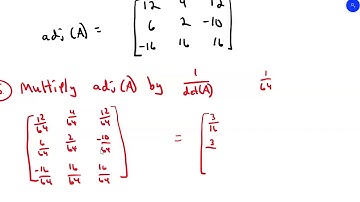 12 4 12
adj (A) = 6 2 -10
-16 16 16
Multiply adj(A) by 1/det(A) 1/64
12/64 4/64 12/64
6/64 2/64 -10/64
-16/64 16/64 16/64
= 3/16
3/